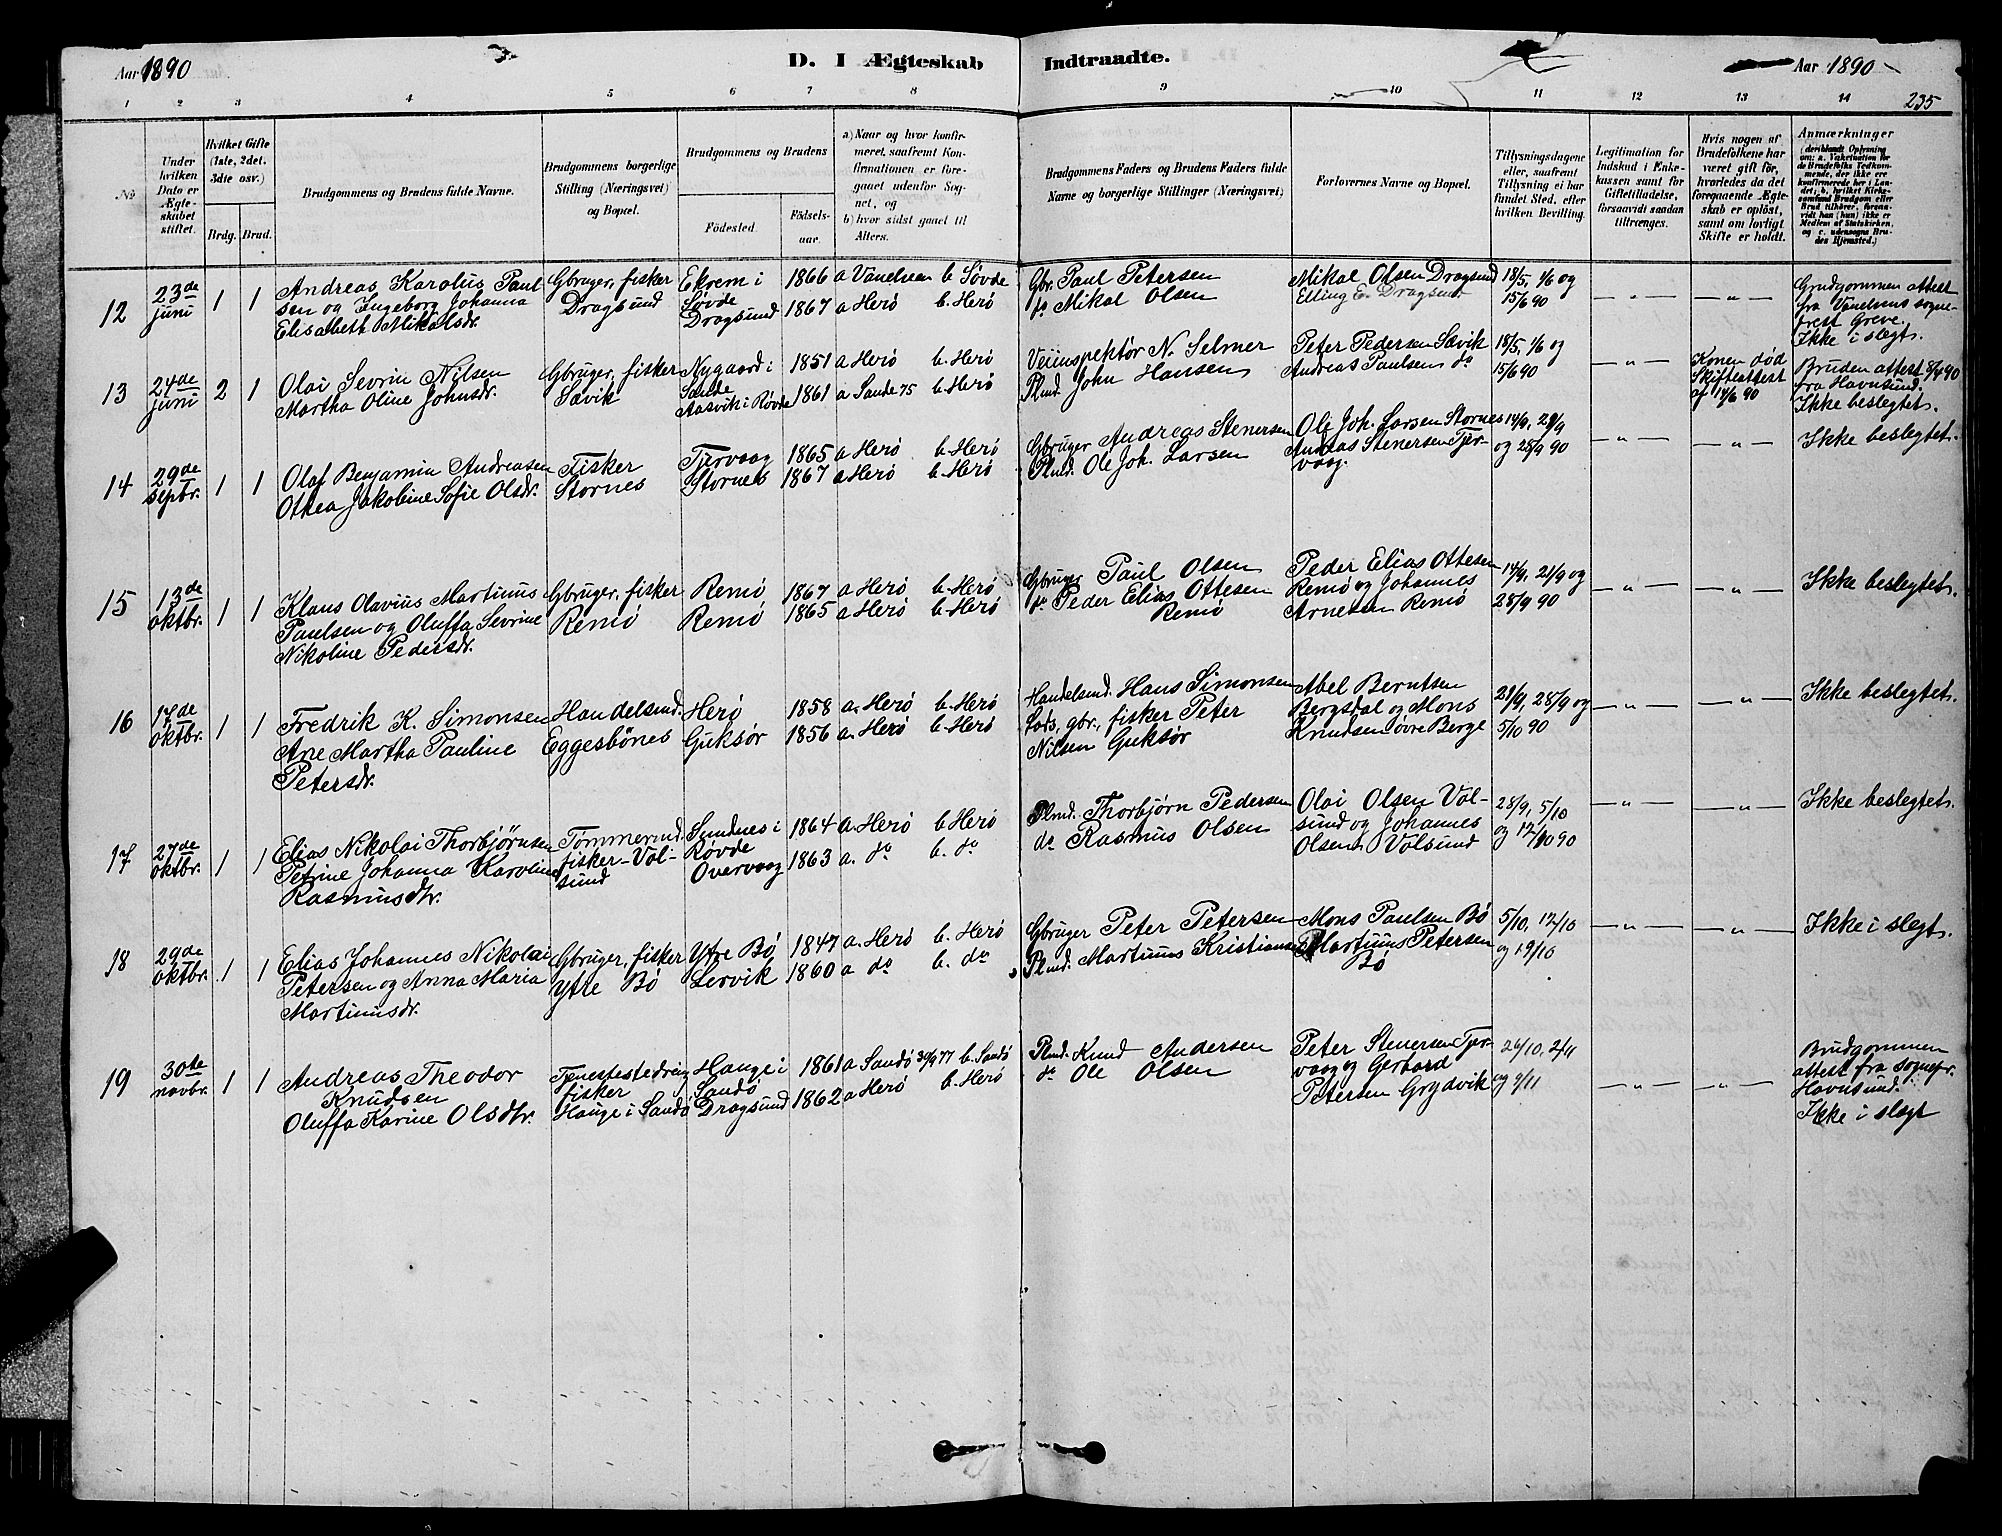 Aar 1890
D. I Ægteskab Indtraadte.
Aar 1890
235
1 2 3 4 5 6 7 8 9 10 11 12 13 14
No
Under hvilken Dato er Ægteskabet stiftet.
Hvilket Gifte (1ste, 2det. 3die osv.)
Brdg. Brud.
Brudgommens og Brudens fulde Navne.
Brudgommens borgerlige Stilling (Næringsvei) og Bopæl.
Brudgommens og Brudens
Födested. Födselsaar.
a) Naar og hvor konfirmeret, saafremt Konfirmationen er foregaaet udenfor Sognet, og
b) hvor sidst gaaet til Alters.
Brudgommens Faders og Brudens Faders fulde Navne og borgerlige Stillinger (Næringsvei)
Forlovernes Navne og Bopæl.
Tillysningsdagene eller, saafremt Tillysning ei har fundet Sted, efter hvilken Bevilling.
Legitimation for Indskud i Enkekassen samt for Giftetilladelse, forsaavidt saadan tiltrænges.
Hvis nogen af Brudefolkene har været gift för, hvorledes da det foregaaende Ægteskab er oplöst, samt om lovligt Skifte er holdt.
Anmærkninger
12 23de juni 1 1
Andreas Karolus Paul
sen og Ingeborg Johanna
Elisabeth Mikalsdr.
Gbruger, fisker
Dragsund
Ekrem i
Søvde
Dragsund
1866 a Vanelven b Søvde
1867 a Herø b. Herø
Gbr. Paul Petersen
do Mikal Olsen
Mikal Olsen Dragsund
Elling E. Dragsund.
18/5, 1/6 og
15/6 90
— " — — " —
Brudgommen attest
fra Vanelvens sogne-
prest Greve.
Ikke i slegt.
13 24de juni 2 1
Olai Sevrin Nilsen
Martha Oline Johnsdr.
Gbruger, fisker
Sævik
Nygaard i
Sande
Aasvik i Røvde
1851 a Herø b. Herø
1861 a Sande 75 b Herø
Veiinspektör N. Selmer
Plmd. John Hansen
Peter Pedersen Sævik
Andreas Paulsen do
18/5, 1/6 og
15/6 90
— " —
Konen død
Skifteattest
af 14/6 90
Bruden attest 8/4 90
fra Havnsund.
Ikke beslegtet.
14 29de septbr. 1 1
Olaf Benjamin Andreasen
Othea Jakobine Sofie Olsdr.
Fisker
Stornes
Tjervaag
Stornes
1865 a Herø b. Herø
1867 a Herø b. Herø
Gbruger Andreas Stenersen
Plmd. Ole Joh. Larsen
Ole Joh. Larsen Stornes
Andreas Stenersen Tjer-
vaag.
14/9, 21/9
og 28/9 90
— " — — " —
Ikke beslegtet.
15 13de oktbr. 1 1
Klaus Olavius Martinus
Paulsen og Oluffa Sevrine
Nikoline Pedersdr.
Gbruger, fisker
Remø
Remø
Remø
1867 a Herø b. Herø
1865 a Herø b. Herø
Gbruger Paul Olsen
do Peder Elias Ottesen
Remø
Peder Elias Ottesen
Remø og Johannes
Arnesen Remø
14/9, 21/9 og
28/9 90
— " — — " —
Ikke beslegtet.
16 17de oktbr. 1 1
Fredrik K. Simonsen
Ane Martha Pauline
Petersdr.
Handelsmd.
Eggesbönes
Herø
Gurskør
1858 a. Herø b. Herø
1856 a. Herø b. Herø
Handelsmd. Hans Simonsen
Lods, gbr., fisker Peter
Nilsen Gurskør
Abel Berntsen
Bergstal og Mons
Knudsen øvre Berge
21/9, 28/9 og
5/10 90
— " — — " —
Ikke beslegtet.
17 27de oktbr. 1 1
Elias Nikolai Thorbjørnsen
Petrine Johanna Karoline
Rasmusdtr.
Tømmermd.
fisker - Vol-
sund
Sundnes i
Røvde
Overvaag
1864 a. Herø b. Herø
1863 a. do b. do
Plmd. Thorbjørn Pedersen
do Rasmus Olsen
Olai Olsen Vol-
sund og Johannes
Olsen Volsund
28/9, 5/10
og 12/10 90
— " — — " —
Ikke beslegtet.
18 29de oktbr. 1 1
Elias Johannes Nikolai
Petersen og Anna Maria
Martinusdr.
Gbruger, fisker
Ytre Bö
Ytre Bö
Lervik
1847 a. Herø b. Herø
1860 a do b. do
Gbruger Peter Petersen
Plmd. Martinus Kristiansen
Mons Paulsen Bö
Martinus Petersen
Bö
5/10, 12/10
og 19/10
— " — — " —
Ikke i slegt.
19 30te novbr. 1 1
Andreas Theodor
Knudsen
Oluffa Karine Olsdtr.
Tjenestedreng
fisker
Hauge i Sandø
Hauge i
Sandø
Dragsund
1861 a Sandø 30/9 77 b. Sandø
1862 a Herø b. Herø
Plmd. Knud Andersen
do Ole Olsen
Peter Stenersen Tjer-
vaag og Gerhard
Petersen Grydvik
26/10, 2/11
og 9/11
— " — — " —
Brudgommen
attest fra sognepr.
Havnsund.
Ikke i slegt